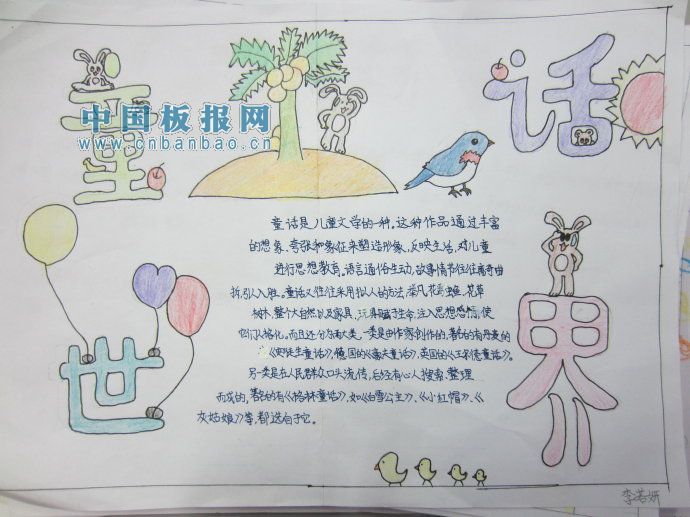 童
话
中国板报网
www.cnbanbao.cn
童话是儿童文学的一种，这种作品通过丰富
的想象、夸张和象征来塑造形象，反映生活，对儿童
进行思想教育，语言通俗生动，故事情节往往离奇曲
折，引人入胜。童话又往往采用拟人的方法，举凡花鸟虫鱼，花草
树木，整个大自然以及家具、玩具赋予生命，注入思想感情，使
它们人格化。而且还分为两大类，一类是由作家创作的，著名的有丹麦的
《安徒生童话》，德国的《豪夫童话》，英国的《王尔德童话》。
另一类是在人民群众口头流传，后经有心人搜索、整理
而成的，著名的有《格林童话》，如《白雪公主》、《小红帽》、《
灰姑娘》等，都选自于它。
世
界
李若妍